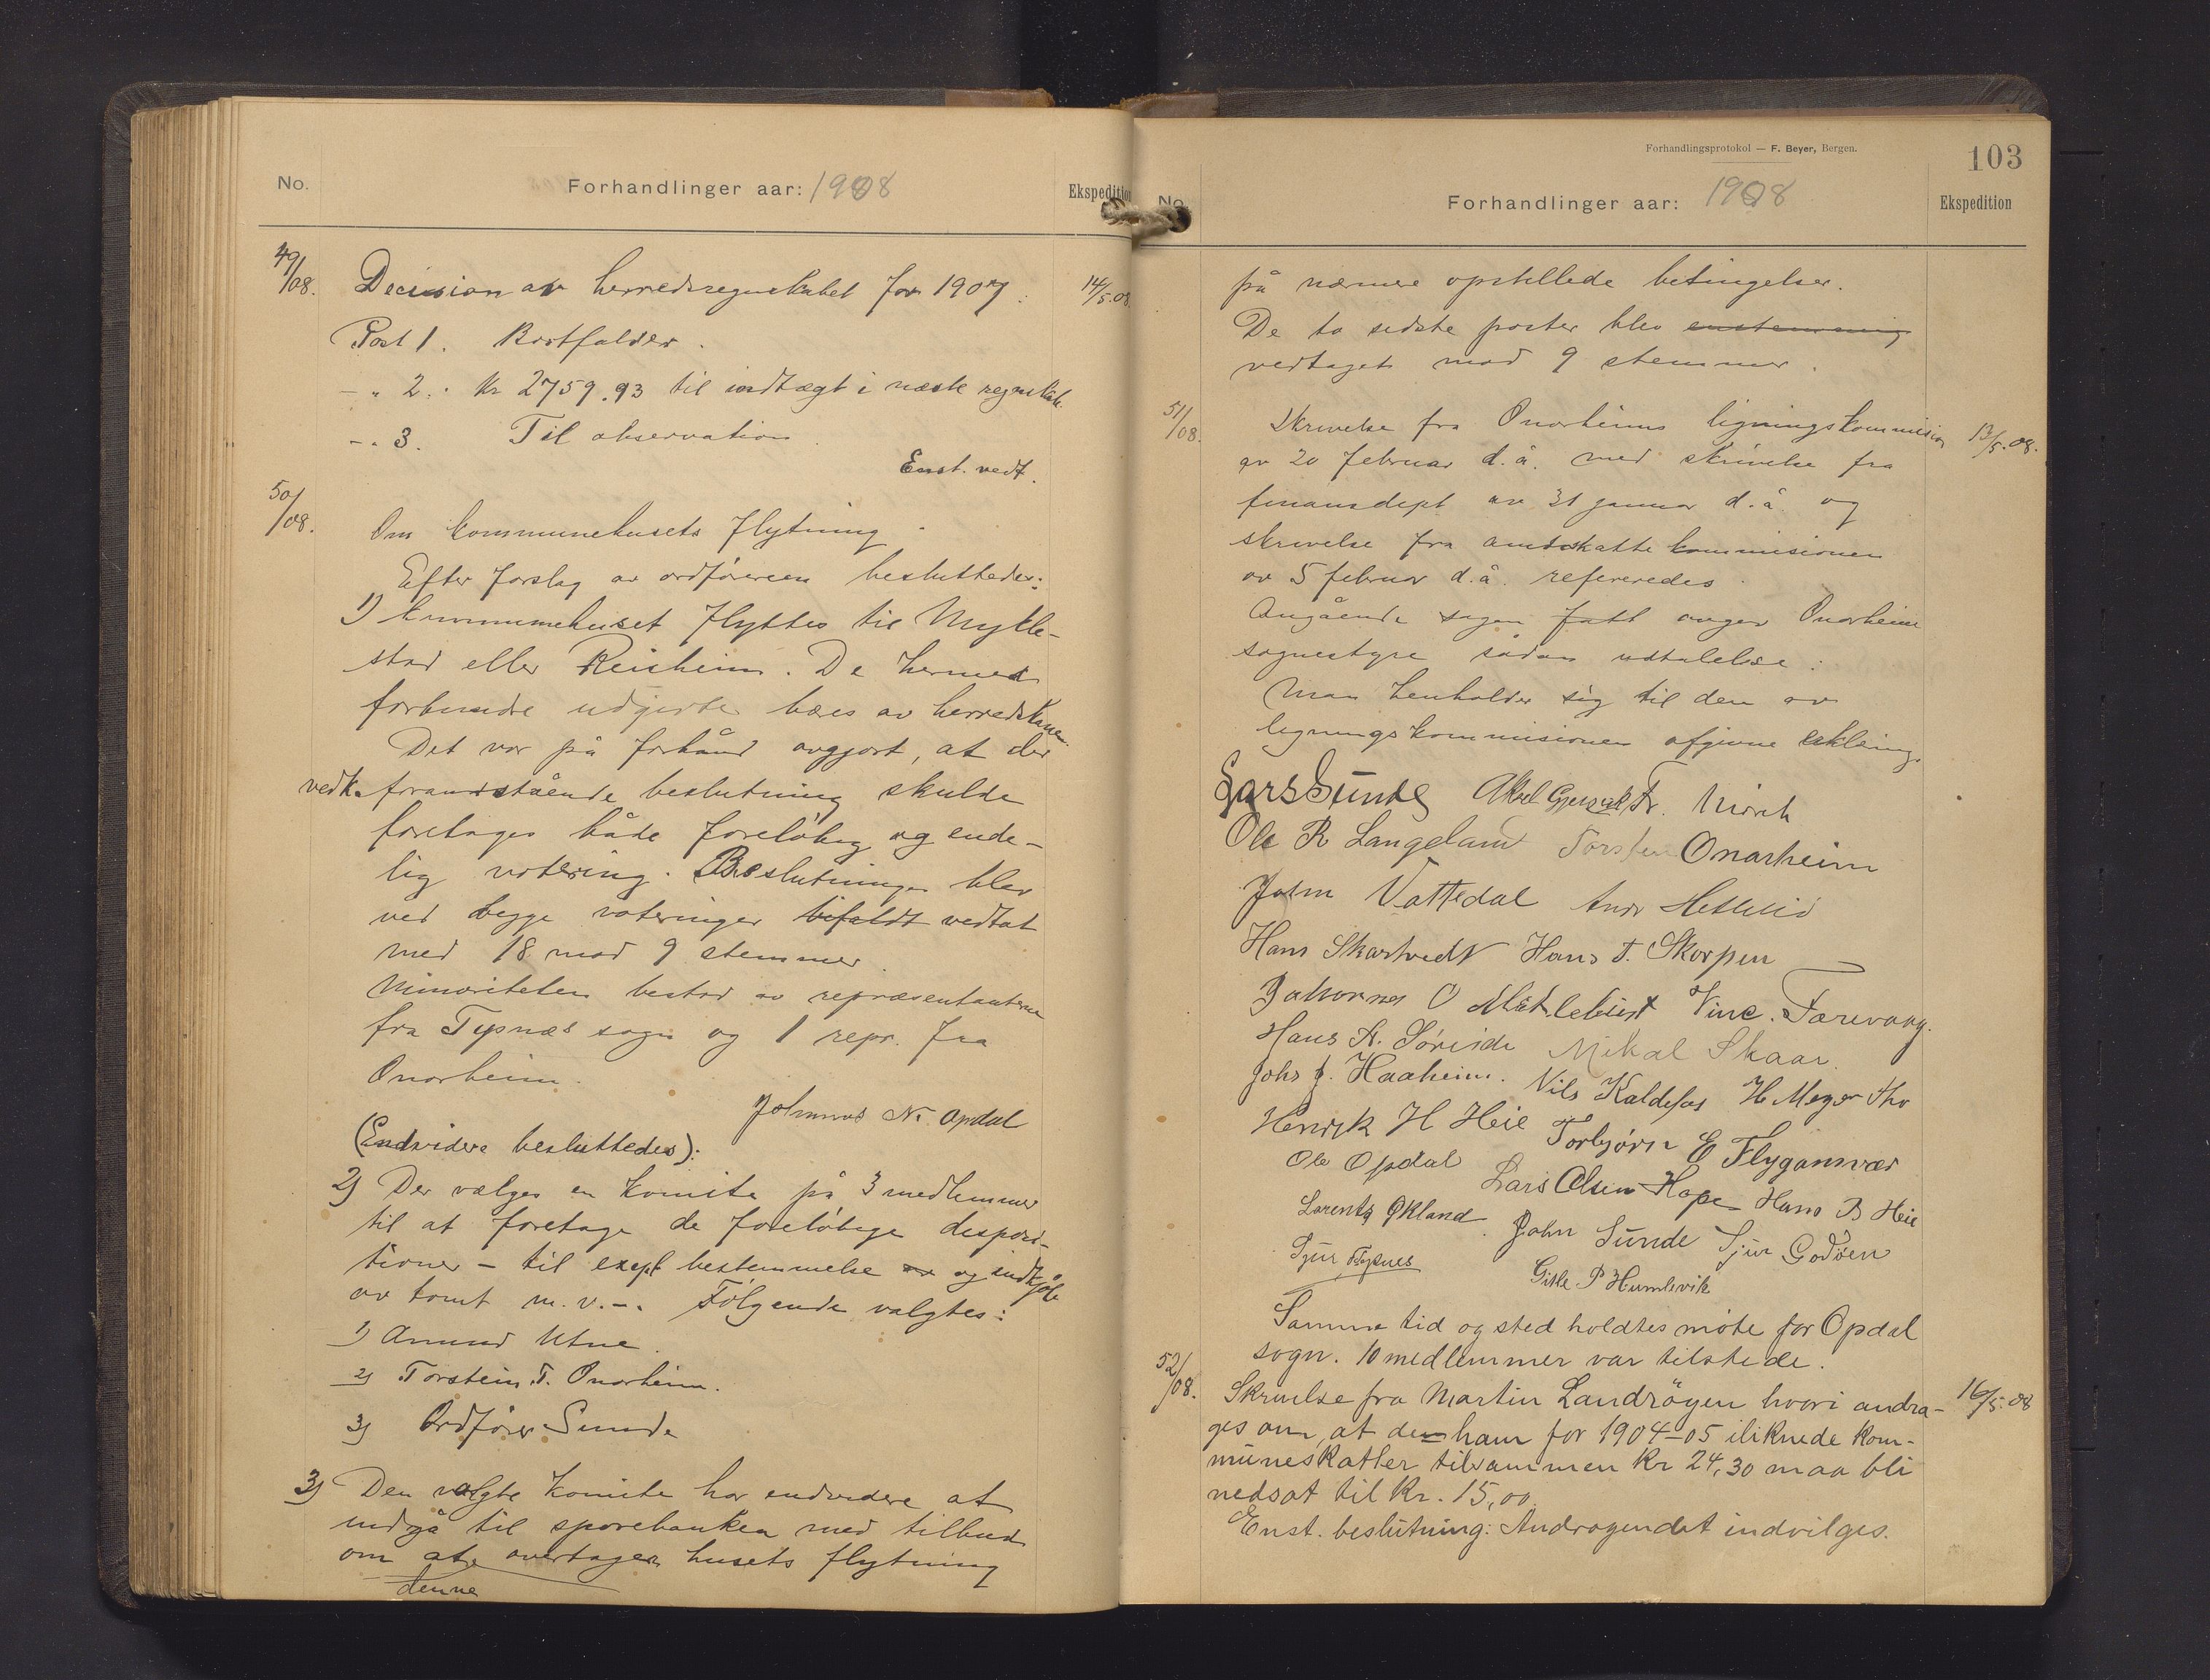 No.
Forhandlinger aar: 1908
Ekspedition
49/08.
Decision av herredsregnskabet for 1907.
14/5.08.
Post 1. Bortfalder.
- " 2. Kr 2759.93 til indtægt i næste regnskab.
- " 3. Til observation.
Enst. vedt.
50/08.
Om kommunehusets flytning.
Efter forslag av ordføreren besluttedes:
1) Kommunehuset flyttes til Mykle-
stad eller Reisheim. De hermed
forbundne udgifter bæres av herredskassen.
Det var på forhånd avgjort, at der
vedk. foranstående beslutning skulde
foretages både foreløbig og ende-
lig votering. Beslutningen blev
ved begge voteringer bifaldt vedtat
med 18 mod 9 stemmer.
Minoriteten bestod av repræsentanterne
fra Tysnæs sogn og 1 repr. fra
Onarheim.
Johannes N. Opdal
(Endvidere besluttedes):
2) Der vælges en komite på 3 medlemmer
til at foretage de foreløbige disposi-
tioner - til bestemmelse og indkjøb
av tomt m.v. -. Følgende valgtes:
1) Amund Utne.
2) Torstein T. Onarheim.
3) Ordfører Sunde
3) Den valgte komite har endvidere at
indgå til sparebanken med tilbud
om at overtage husets flytning
denne
Forhandlingsprotokol — F. Beyer, Bergen.
103
No.
Forhandlinger aar: 1908
Ekspedition
på nærmere opstillede betingelser.
De to sidste poster blev enstemmig
vedtaget mod 9 stemmer.
51/08.
Skrivelse fra Onarheims ligningskommission
13/5.08.
av 20 februar d.å. med skrivelse fra
finansdept av 31 januar d.å. og
skrivelse fra amtsskattekommisionen
av 5 februar d.å. refereredes.
Angående sagen avger Onarheim
sognestyre sådan udtalelse:
Man henholder sig til den av
ligningskommisionen afgivne erklæring.
Lars Sunde Fr. Mirch
Ole R Langeland Torstein Onarheim
John Vattedal Andr Hetlevid
Hans Skartvedt Hans T. Skorpen
Johannes O Vinc. Færevaag.
Hans A. Søreide Mikal Skaar.
Johs J. Haaheim. Nils Kaldefos H Meyer
Henrik H Heie Torbjørn E Flygansvær
Ole Opdal Lars Olsen Hope Hans B Heie
Lorentz Økland John Sunde Sjur Godøen
Sjur Tysnes Gitle P Humlevik
Samme tid og sted holdtes møte for Opdal
sogn. 10 medlemmer var tilstede.
52/08.
Skrivelse fra Martin Landrøyen hvori andra-
16/5.08
ges om, at den ham for 1904-05 iliknede kom-
muneskatter tilsammen Kr 24,30 maa bli
nedsat til Kr. 15,00.
Enst. beslutning: Andragendet indvilges.